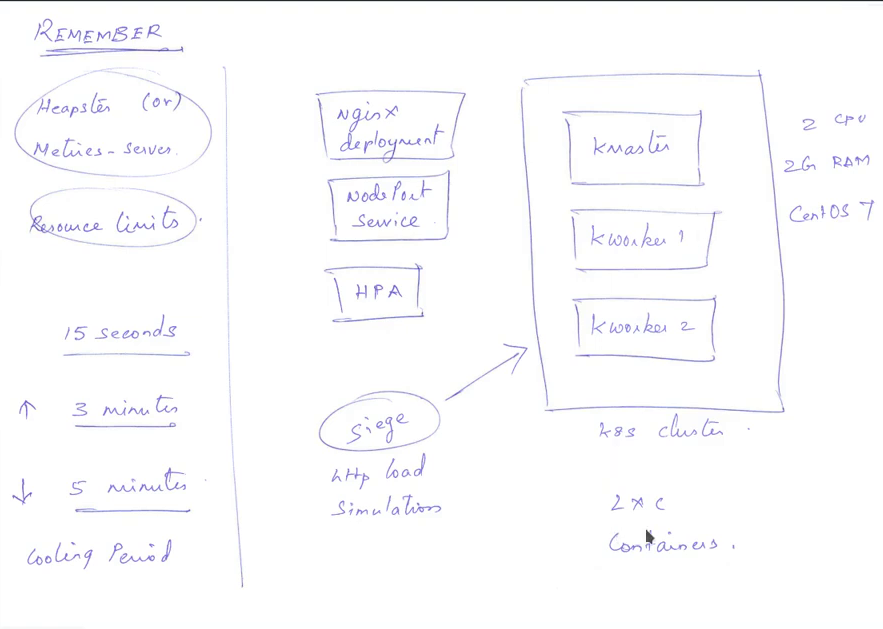 REMEMBER
Heapster (or)
Metrics-server.
Resource limits.
15 seconds
↑ 3 minutes
↓ 5 minutes
Cooling Period
Nginx
deployment
NodePort
Service
HPA
Siege
http load
Simulation
kmaster
kworker 1
kworker 2
k8s cluster.
2 CPU
2G RAM
CentOS 7
Containers.